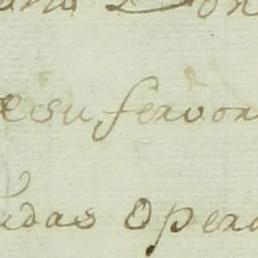 Don
e su fervor
udas Opera